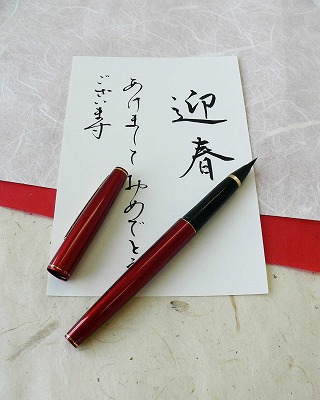 迎春
あけまして おめでとう
ございます